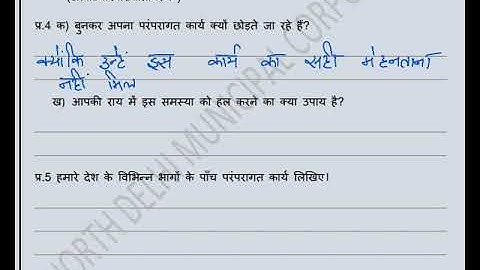 प्र.4 क) बुनकर अपना परंपरागत कार्य क्यों छोड़ते जा रहे हैं?
क्योंकि उन्हें इस कार्य का सही मेहनताना
नहीं मिल
ख) आपकी राय में इस समस्या को हल करने का क्या उपाय है?
प्र.5 हमारे देश के विभिन्न भागों के पाँच परंपरागत कार्य लिखिए।
NORTH DELHI MUNICIPAL CORPO